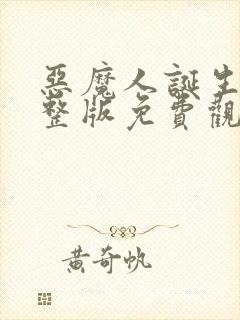 惡魔人誕生
整版免費觀
黃奇帆